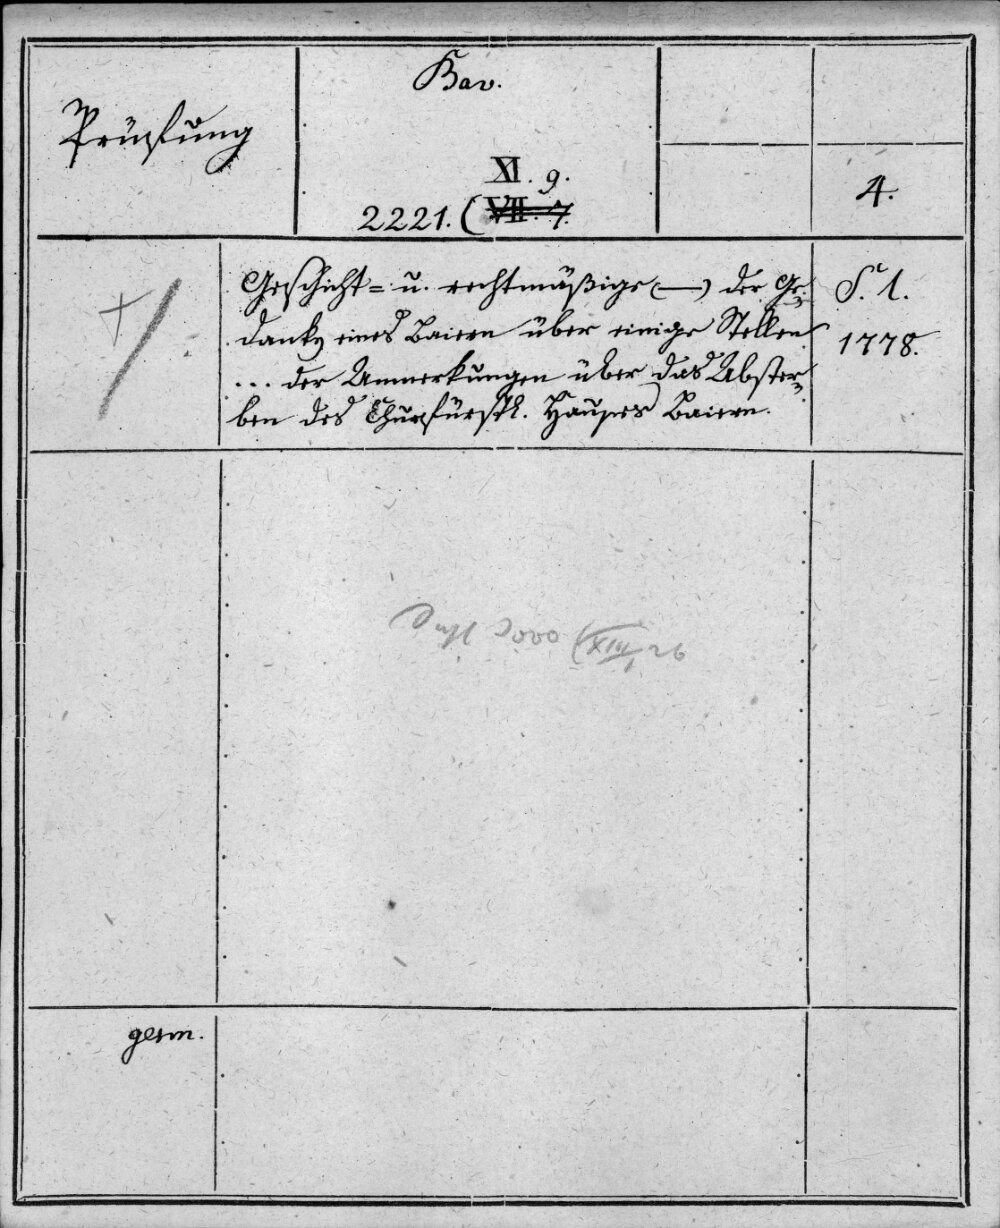 Prüfung
Bav.
XI. 9.
2221. (VII. 7.
4.
Geschicht= u. rechtmäßige (—) der Ge=
danken eines Baiern über einige Stellen
... der Anmerkungen über das Abster=
ben des Churfürstl. Hauses Baiern.
S. l.
1778.
2000 (XIII, 26
germ.